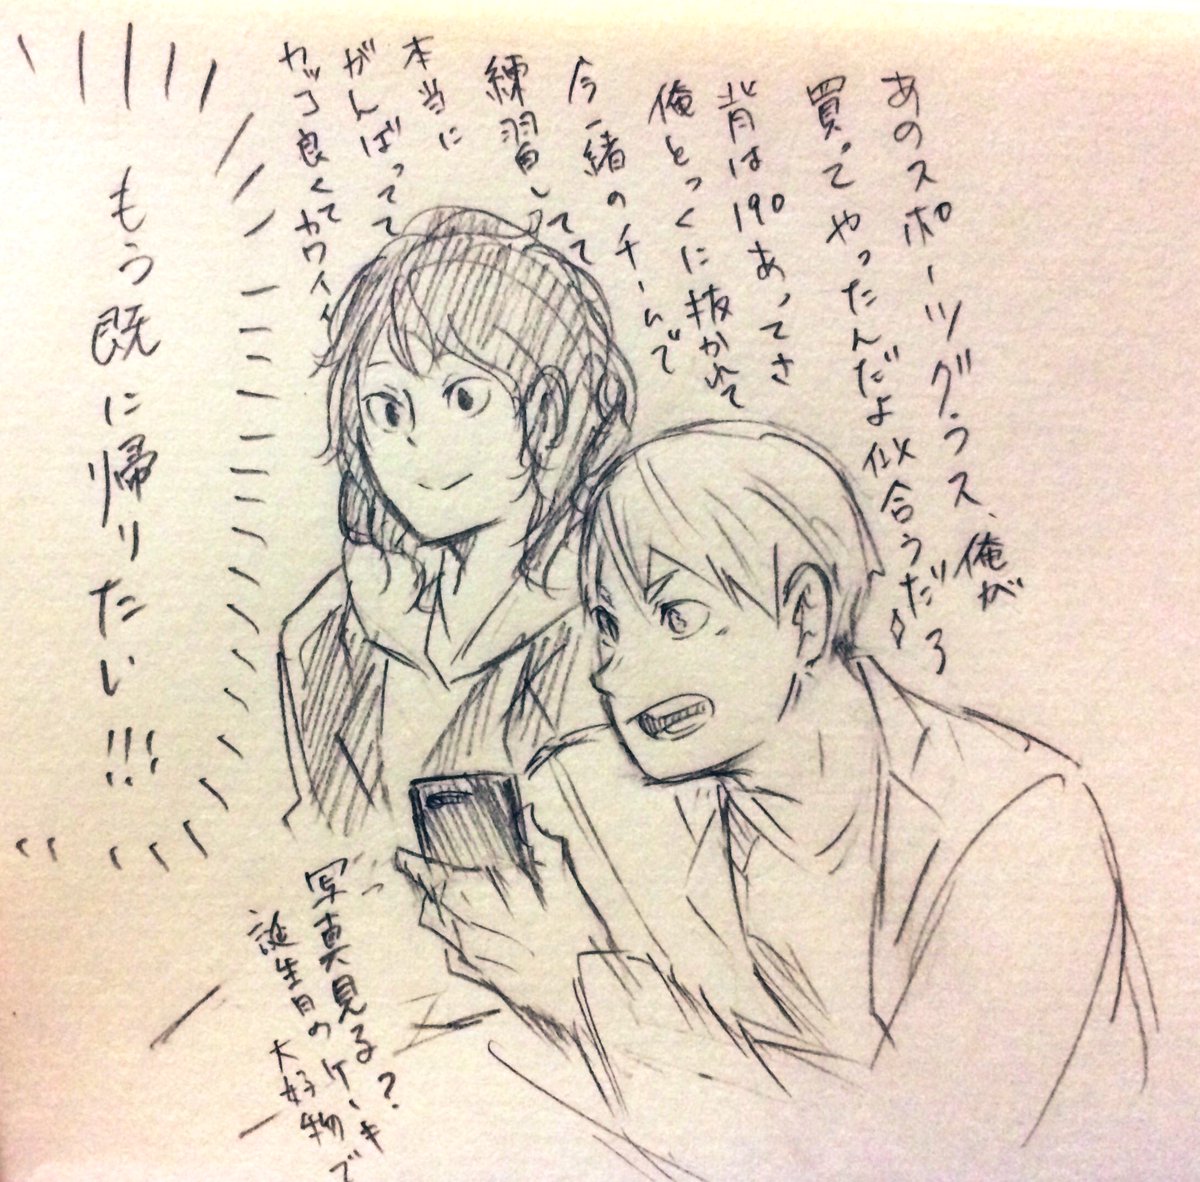 あのスポーツグラス、俺が
買ってやったんだよ似合うだろ
背は190あってさ
俺とっくに抜かれて
今一緒のチームで
練習してて
本当に
がんばってて
カッコ良くてカワイイ
もう既に帰りたい!!!
写真見る?
誕生日のケーキ
大好物で